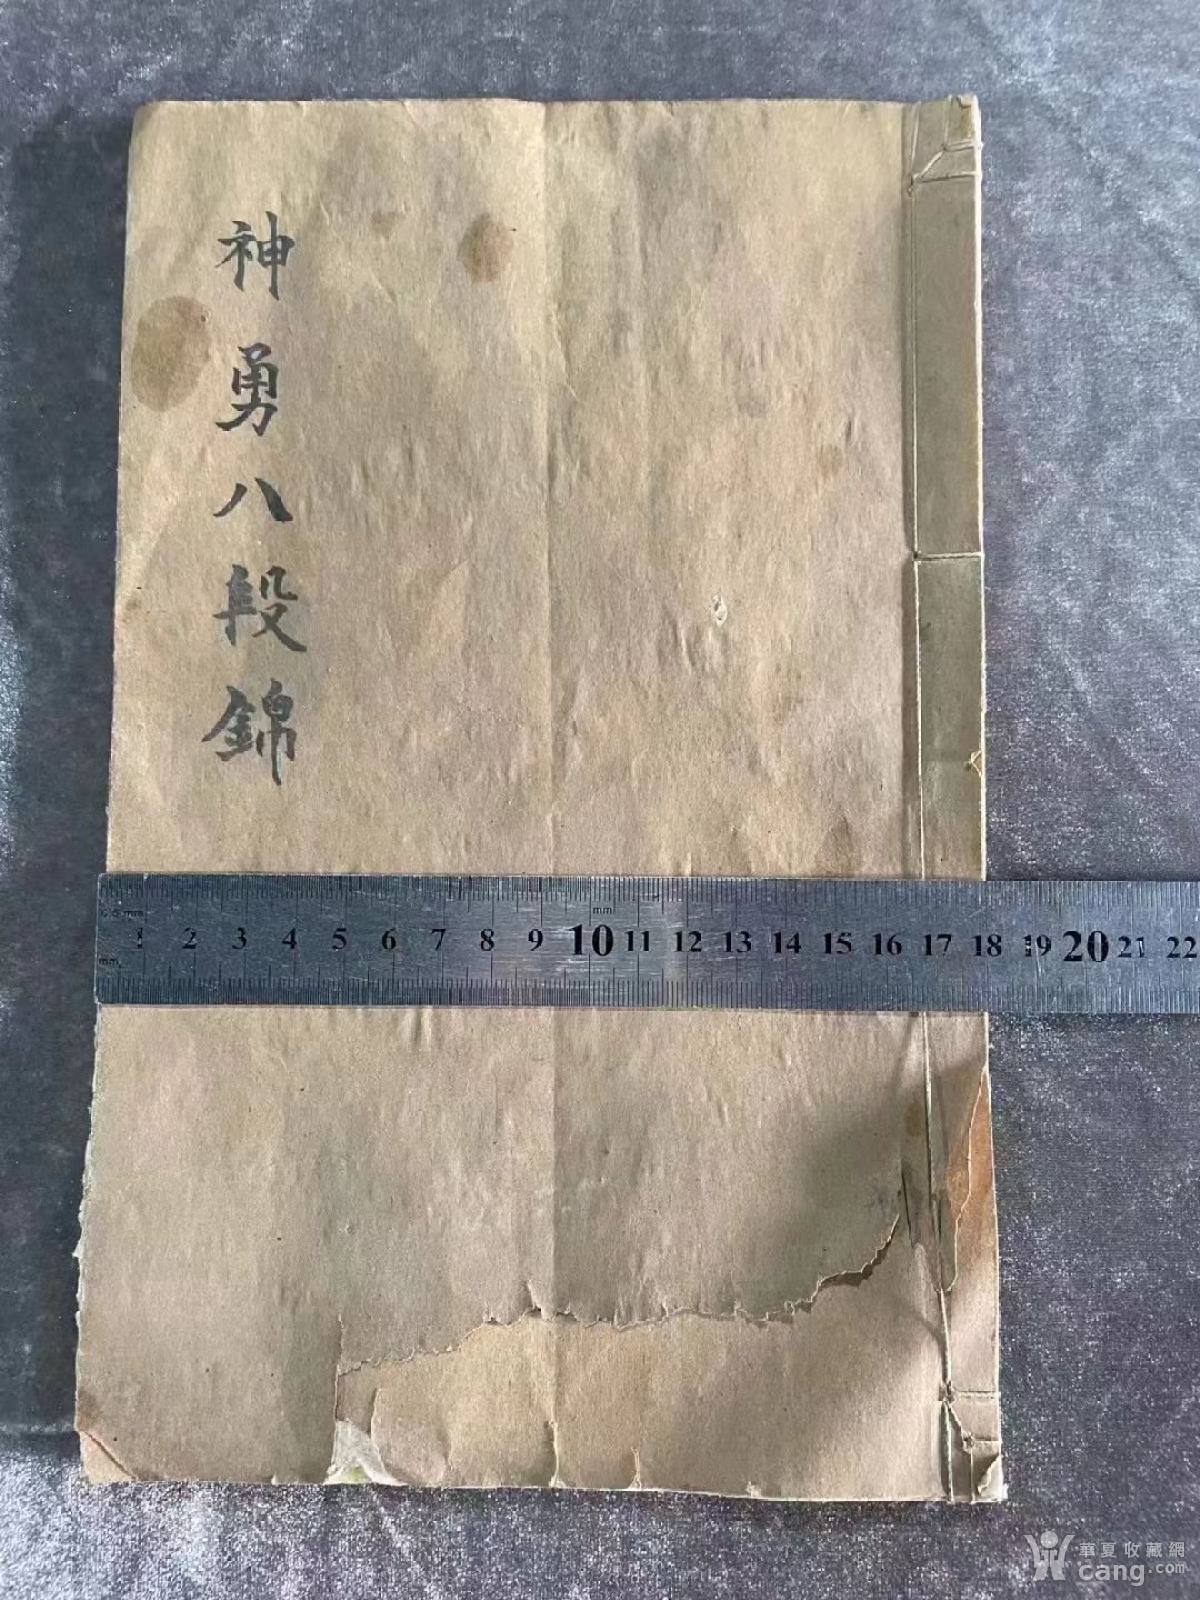 神勇八段錦
0.5 mm
1 2 3 4 5 6 7 8 9 10 11 12 13 14 15 16 17 18 19 20 21 22
mm
mm
華夏收藏網
cang.com